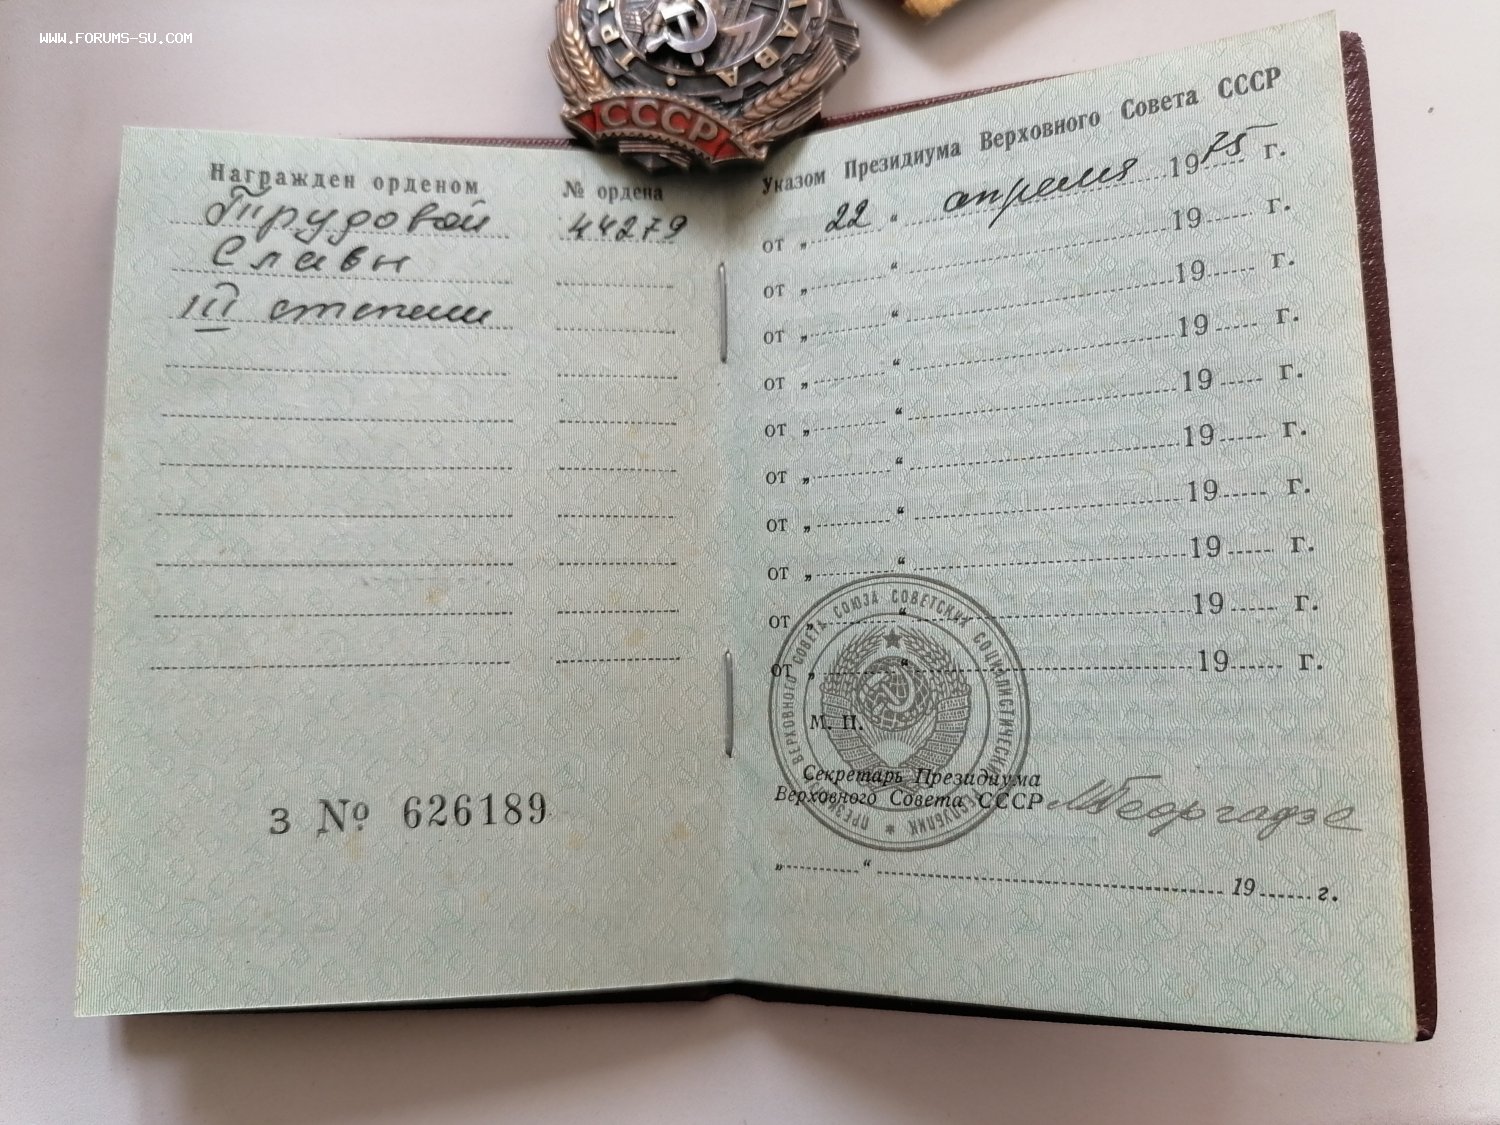 WWW.FORUMS-SU.COM
ТРУ
ЛАВА
СССР
Награжден орденом
№ ордена
Трудовой
44279
Славы
III степени
З № 626189
Указом Президиума Верховного Совета СССР
от „ 22 “ апреля 1975 г.
от „ “ 19 г.
от „ “ 19 г.
от „ “ 19 г.
от „ “ 19 г.
от „ “ 19 г.
от „ “ 19 г.
от „ “ 19 г.
от „ “ 19 г.
от „ “ 19 г.
ПРЕЗИДИУМ ВЕРХОВНОГО СОВЕТА СОЮЗА СОВЕТСКИХ СОЦИАЛИСТИЧЕСКИХ РЕСПУБЛИК
М. П.
Секретарь Президиума
Верховного Совета СССР
МГеоргадзе
„ “ 19 г.